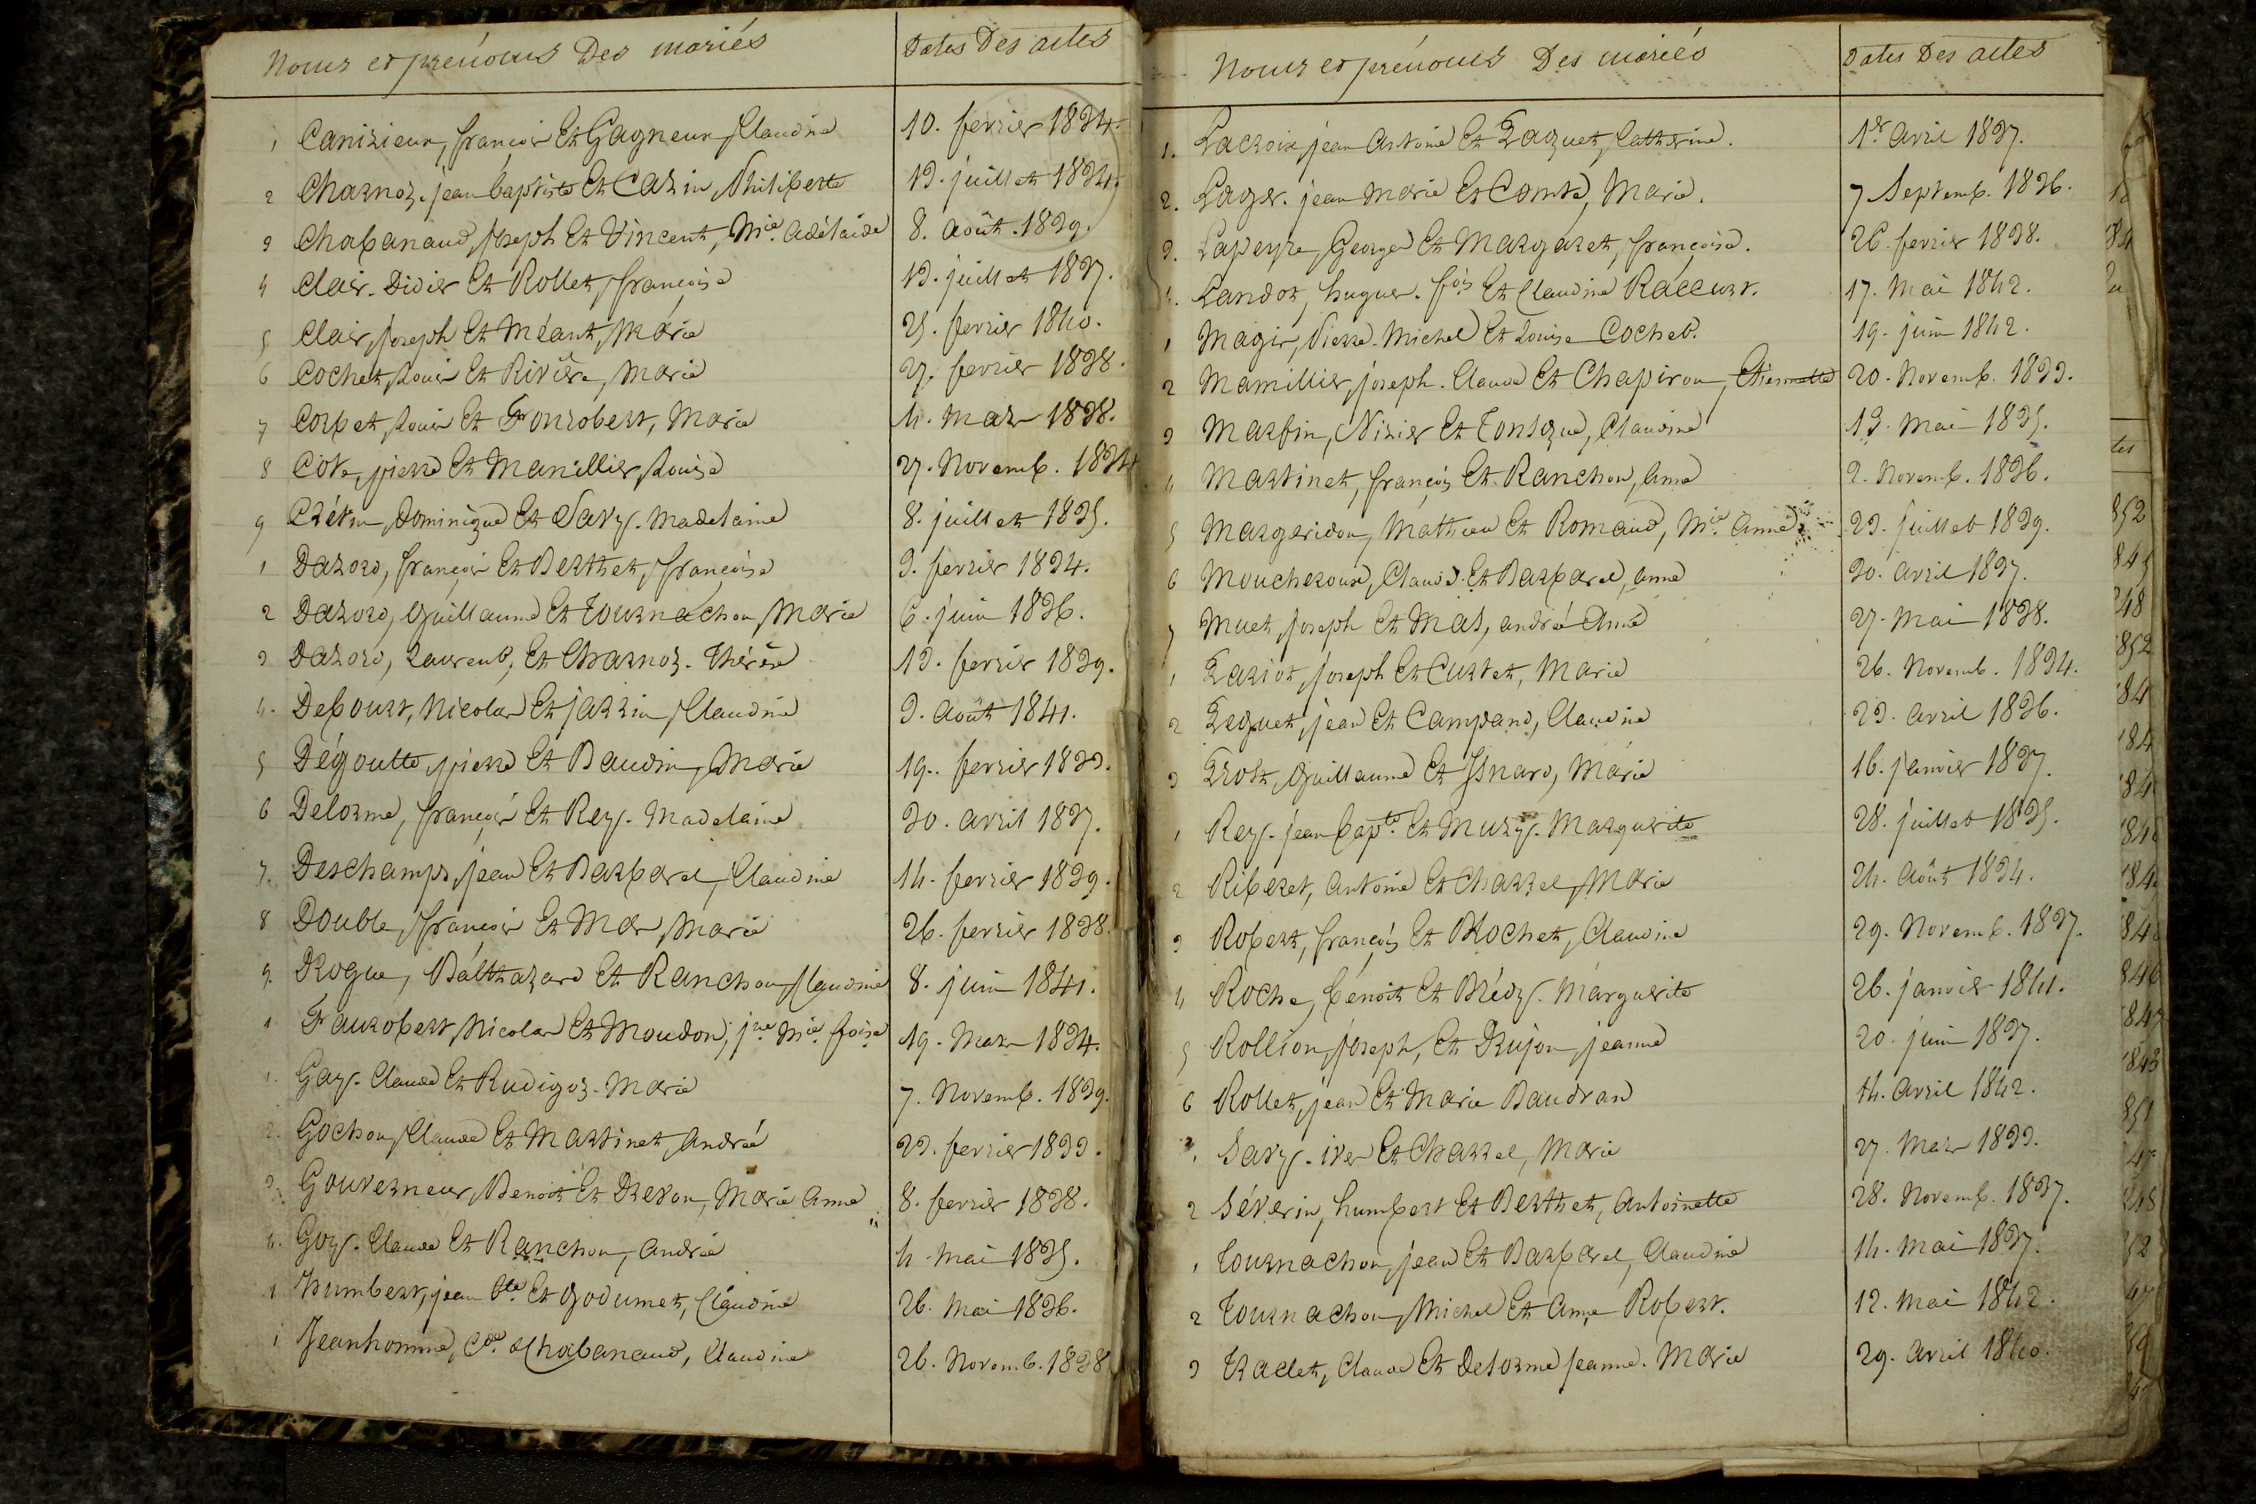 Noms et prénoms Des mariés
Dates Des actes
1 Canizieux, françois Et Gagneur, Claudine 10. fevrier 1834.
2 Charnoz. jean baptiste Et Cazin, Philiberte 13. juillet 1834.
3 Chabanaud, joseph Et Vincent, Mie. adélaide 8. août. 1839.
4 Clair. Didier Et Rollet, françoise 13. juillet 1837.
5 Clair, joseph Et Méant, Marie 25. fevrier 1840.
6 Cochet, Louis Et Rivière, Marie 27. fevrier 1838.
7 Corbet, Louis Et Fonrobert, Marie 4. mars 1838.
8 Côte, pierre Et Manillier, Louise 27. Novemb. 1834
9 Crétin, Dominique Et Savy. Madelaine 8. juillet 1835.
1 Dazord, françois Et Berthet, françoise 3. fevrier 1834.
2 Dazord, Guillaume Et Tournachon, Marie 6. juin 1836.
3 Dazord, Laurent, Et Charnoz. Thérèse 13. fevrier 1839.
4. Debourt, Nicolas Et jarrin, Claudine 3. Août 1841.
5 Dégoutte, pierre Et Baudin, Marie 19. fevrier 1833.
6 Delorme, françois Et Rey. Madelaine 30. avril 1837.
7. Deschamps, jean Et Barbarel, Claudine 14. fevrier 1839.
8 Double, françois Et Mas, Marie 26. fevrier 1838.
9. Drogue, Balthazard Et Ranchon, Claudine 8. juin 1841.
1 Faurobert, Nicolas Et Moudon, jne. Mie. foise 19. Mars 1834.
1. Gay. Claude Et Rudigoz. Marie 7. Novemb. 1839.
2. Gochon, Claude Et Martinet, André 23. fevrier 1833.
3. Gouverneur, Benoit Et Drevon, Marie Anne 8. fevrier 1838.
4. Goy. Claude Et Ranchon, André 4 mai 1835.
1 Humbert, jean Bte. Et Godumet, Claudine 26. Mai 1836.
1 Jeanhomme, Cde. Et Chabanaud, Claudine 26. Novemb. 1838
Noms et prénoms Des mariés
Dates Des actes
1. Lacroix, jean Antoine Et Paquet, Catherine. 1er. avril 1837.
2. Lager. jean Marie Et Comte, Marie. 7 Septemb. 1836.
3. Lapeyre, George Et Margaret, françoise. 26. fevrier 1838.
4. Landot, hugues. fois Et Claudine Raccurt. 17. Mai 1842.
1 Magis, Pierre Michel Et Louise Cochet. 19. juin 1842.
2 Mamillier, joseph. Claude Et Chapiron, Etiennette 20. Novemb. 1833.
3 Marfin, Nizier Et Tonsque, Claudine 13. Mai 1835.
4 Martinet, françois Et Ranchon, Anne 2. Novemb. 1836.
5 Margeridon, Mathieu Et Romand, Mie. Anne 23. juillet 1839.
6 Moucheroux, Claude Et Barbarel, Anne 30. avril 1837.
7 Muet, joseph Et Mas, andré Anne 27. Mai 1838.
1 Pariot, joseph Et Curtet, Marie 26. Novemb. 1834.
2 Pequet, jean Et Campand, Claudine 23. avril 1836.
3 Prost, Guillaume Et Isnard, Marie 16. janvier 1837.
1 Rey. jean bapte. Et Mury. Marguerite 28. juillet 1835.
2 Riberet, Antoine Et Charrel, Marie 24. Août 1834.
3 Robert, françois Et Brochet, Claudine 29. Novemb. 1837.
4 Roche, benoit Et Brédy. Marguerite 26. janvier 1841.
5 Rollion, joseph, Et Drujon, jeanne 20. juin 1837.
6 Rollet, jean Et Marie Baudran 14. avril 1842.
1 Savy. ives Et Charrel, Marie 27. Mars 1833.
2 Séverin, humbert Et Berthet, Antoinette 28. Novemb. 1837.
1 Tournachon, jean Et Barbarel, Claudine 14. Mai 1837.
2 Tournachon, Michel Et Anne Robert. 12. Mai 1842.
3 Traclet, Claude Et Delorme jeanne. Marie 29. Avril 1840.